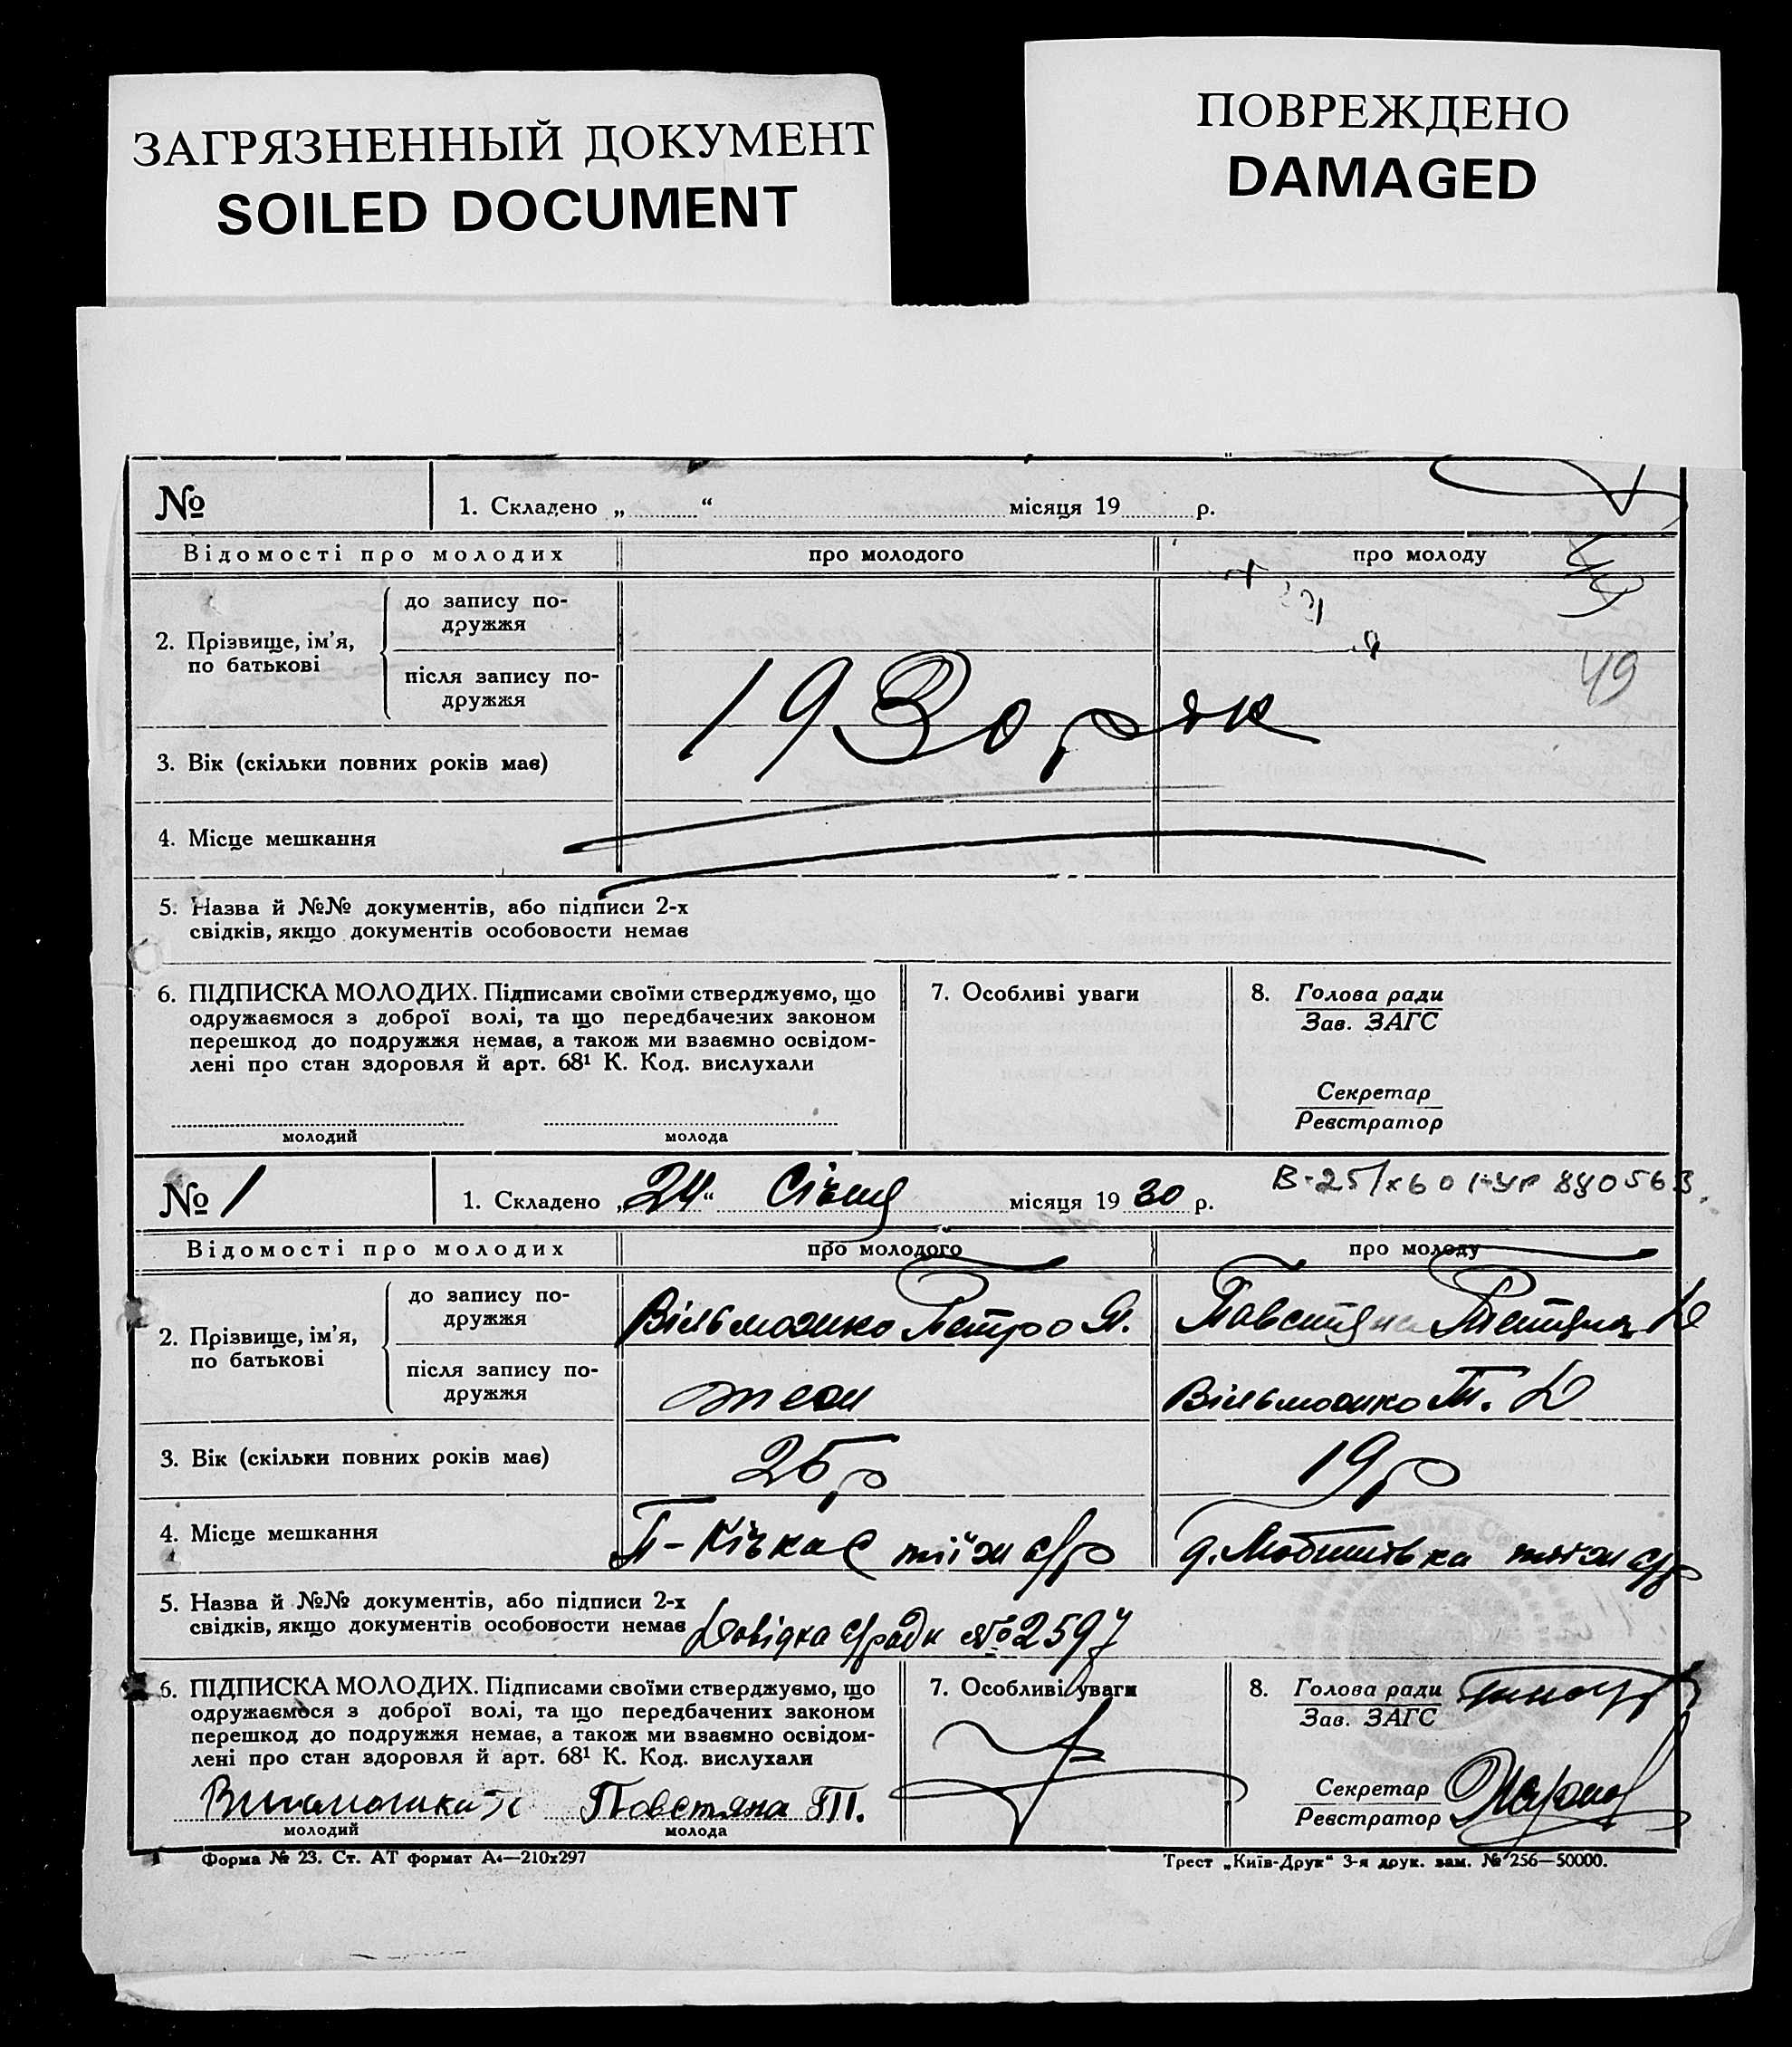 ЗАГРЯЗНЕННЫЙ ДОКУМЕНТ
SOILED DOCUMENT
ПОВРЕЖДЕНО
DAMAGED
№
1. Складено „ “ місяця 19 р.
Відомості про молодих
про молодого
про молоду
2. Прізвище, ім’я, по батькові
до запису по-
дружжя
після запису по-
дружжя
49
1930 рік
3. Вік (скільки повних років має)
4. Місце мешкання
5. Назва й №№ документів, або підписи 2-х
свідків, якщо документів особовости немає
6. ПІДПИСКА МОЛОДИХ. Підписами своїми стверджуємо, що
одружаємося з доброї волі, та що передбачених законом
перешкод до подружжя немає, а також ми взаємно освідом-
лені про стан здоровля й арт. 68¹ К. Код. вислухали
молодий
молода
7. Особливі уваги
8. Голова ради
Зав. ЗАГС
Секретар
Реєстратор
№ 1
1. Складено „24“ Січня місяця 1930 р.
Відомості про молодих
про молодого
про молоду
2. Прізвище, ім’я,
по батькові
до запису по-
дружжя
Петро П.
після запису по-
дружжя
3. Вік (скільки повних років має)
25 р
19 р
4. Місце мешкання
П-Кічкас
5. Назва й №№ документів, або підписи 2-х
свідків, якщо документів особовости немає
Довідка с/ради № 2597
6. ПІДПИСКА МОЛОДИХ. Підписами своїми стверджуємо, що
одружаємося з доброї волі, та що передбачених законом
перешкод до подружжя немає, а також ми взаємно освідом-
лені про стан здоровля й арт. 68¹ К. Код. вислухали
Повстяна
молодий
молода
7. Особливі уваги
8. Голова ради
Зав. ЗАГС
Секретар
Реєстратор
Форма № 23. Ст. АТ формат А₄—210х297
Трест „Київ-Друк“ 3-я друк. зам. № 256—50000.